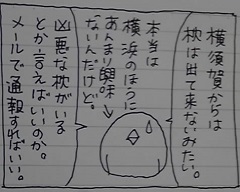 横須賀からは
枕は出て来ないみたい。
本当は
横浜のほうに
あんまり興味
ないんだけど。
凶悪な枕がいる
とか言えばいいのか。
メールで通報すればいい。